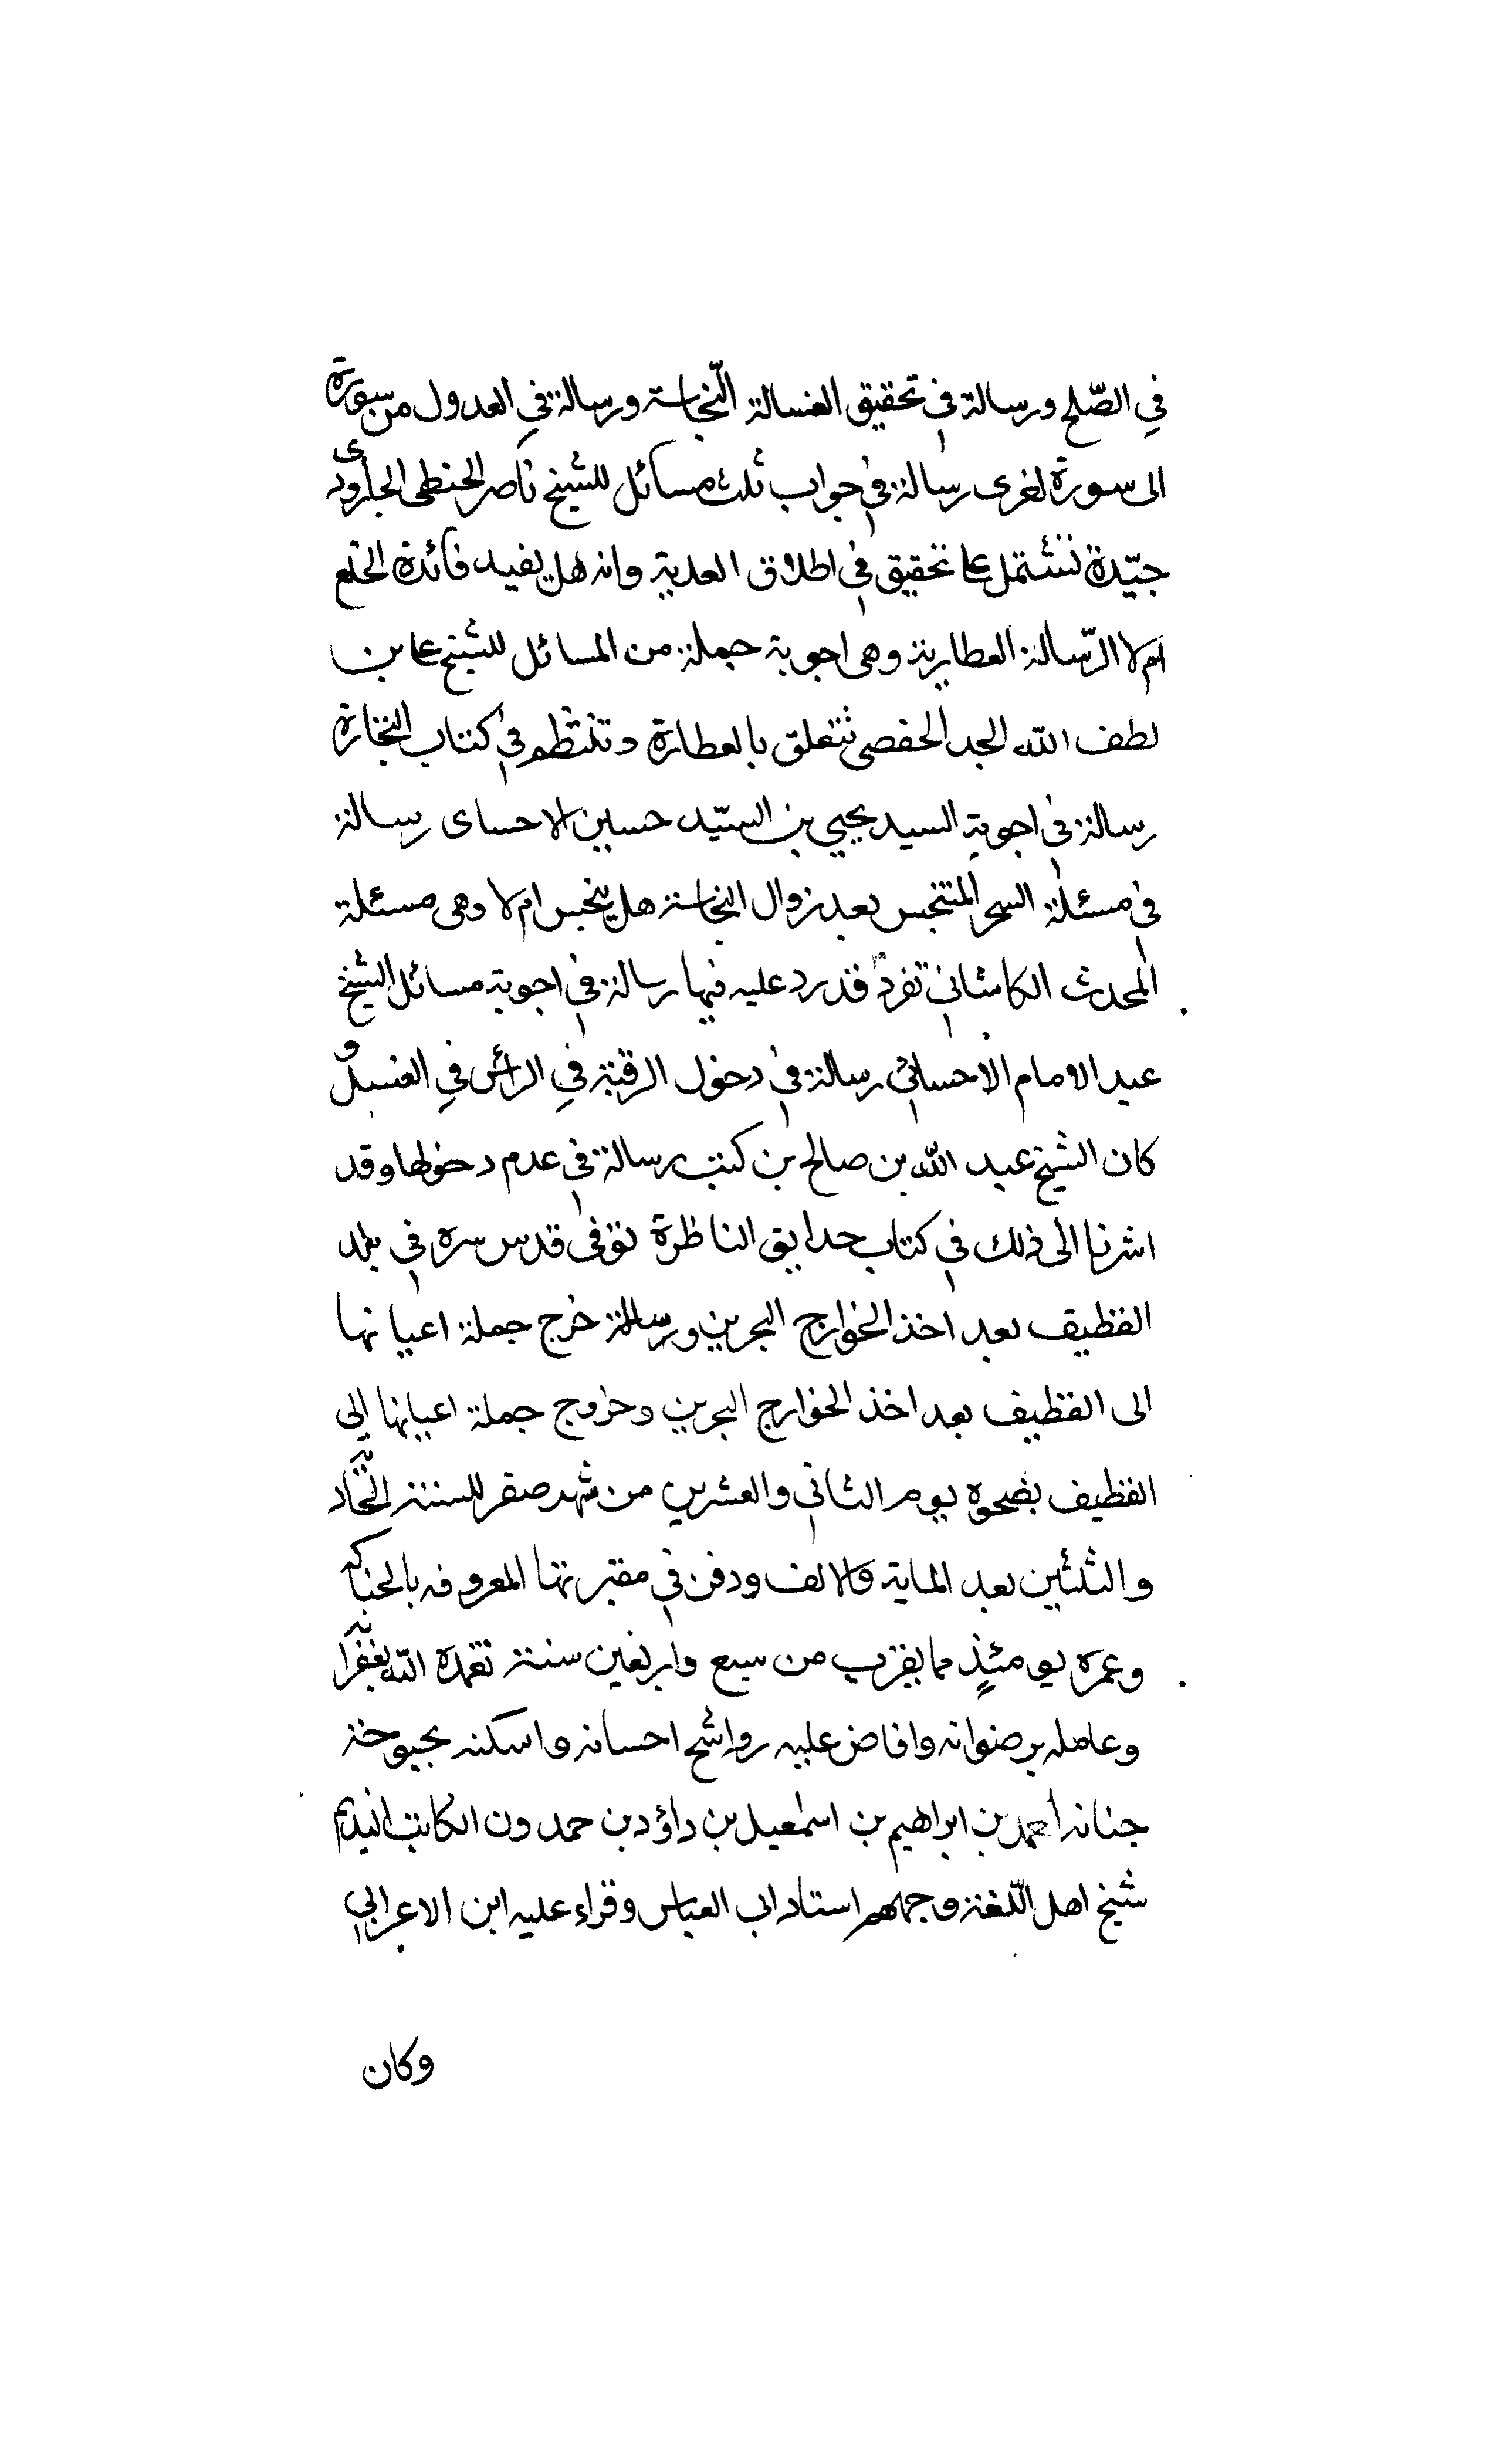 في الصّلح ورسالة في تحقيق الغسالة النّجاسة ورسالة في العدول من سورة
الى سورة لغرى رسالة في جواب ثلث مسائل للشيخ ناصر الخطى الجارودى
جيّدة تشتمل على تحقيق في اطلاق العدية وانه هل يفيد فائدة الخلع
ام لا الرّسالة العطارية وهى اجوبة جملة من المسائل للشيخ على بن
لطف الله الجد الحفصى تتعلق بالعطارة وتنتظم في كتاب التجارة
رسالة في اجوبة السيد يحيى بن السيّد حسين الاحساى رسالة
في مسئلة السحر المتنجس بعد زوال النجاسة هل ينجس ام لا وهى مسئلة
المحدث الكاشانى تفرد قد رد عليه فيها رسالة في اجوبة مسائل الشيخ
عبد الامام الاحسائى رسالة في دخول الرقبة في الرأس في الغسل و
كان الشيخ عبد الله بن صالح بن كتب رسالة في عدم دخولها وقد
اشرنا الى ذلك في كتاب حدايق الناظرة توفى قدس سره في بلد
القظيف بعد اخذ الخوارج البحرين ورسالة خرج جملة اعيانها
الى القظيف بعد اخذ الخوارج البحرين وخروج جملة اعيانها الى
القظيف بضحوة يوم الثانى والعشرين من شهر صفر للسنة الحادية
والثلثين بعد الماية والالف ودفن في مقبرتها المعروفه بالحناكه
وعمره يومئذٍ مما يقرب من سبع واربعين سنة تغمده الله بغفرانه
وعامله برضوانه وافاض عليه رواشح احسانه واسكنه بحبوحة
جنانه أحمد بن ابراهيم بن اسمعيل بن داؤد بن حمدون الكاتب النديم
شيخ اهل اللّغة وجههم استاد ابى العباس وقراء عليه ابن الاعرابى
وكان